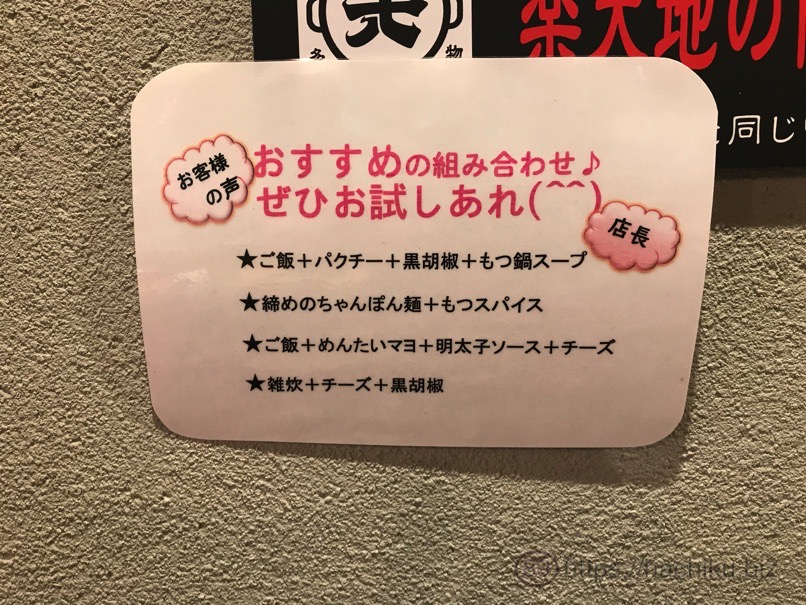 多
物
楽天地の
同じ
お客様
の声
おすすめの組み合わせ♪
ぜひお試しあれ(^^)
店長
★ご飯＋パクチー＋黒胡椒＋もつ鍋スープ
★締めのちゃんぽん麺＋もつスパイス
★ご飯＋めんたいマヨ＋明太子ソース＋チーズ
★雑炊＋チーズ＋黒胡椒
https://hachiku.biz